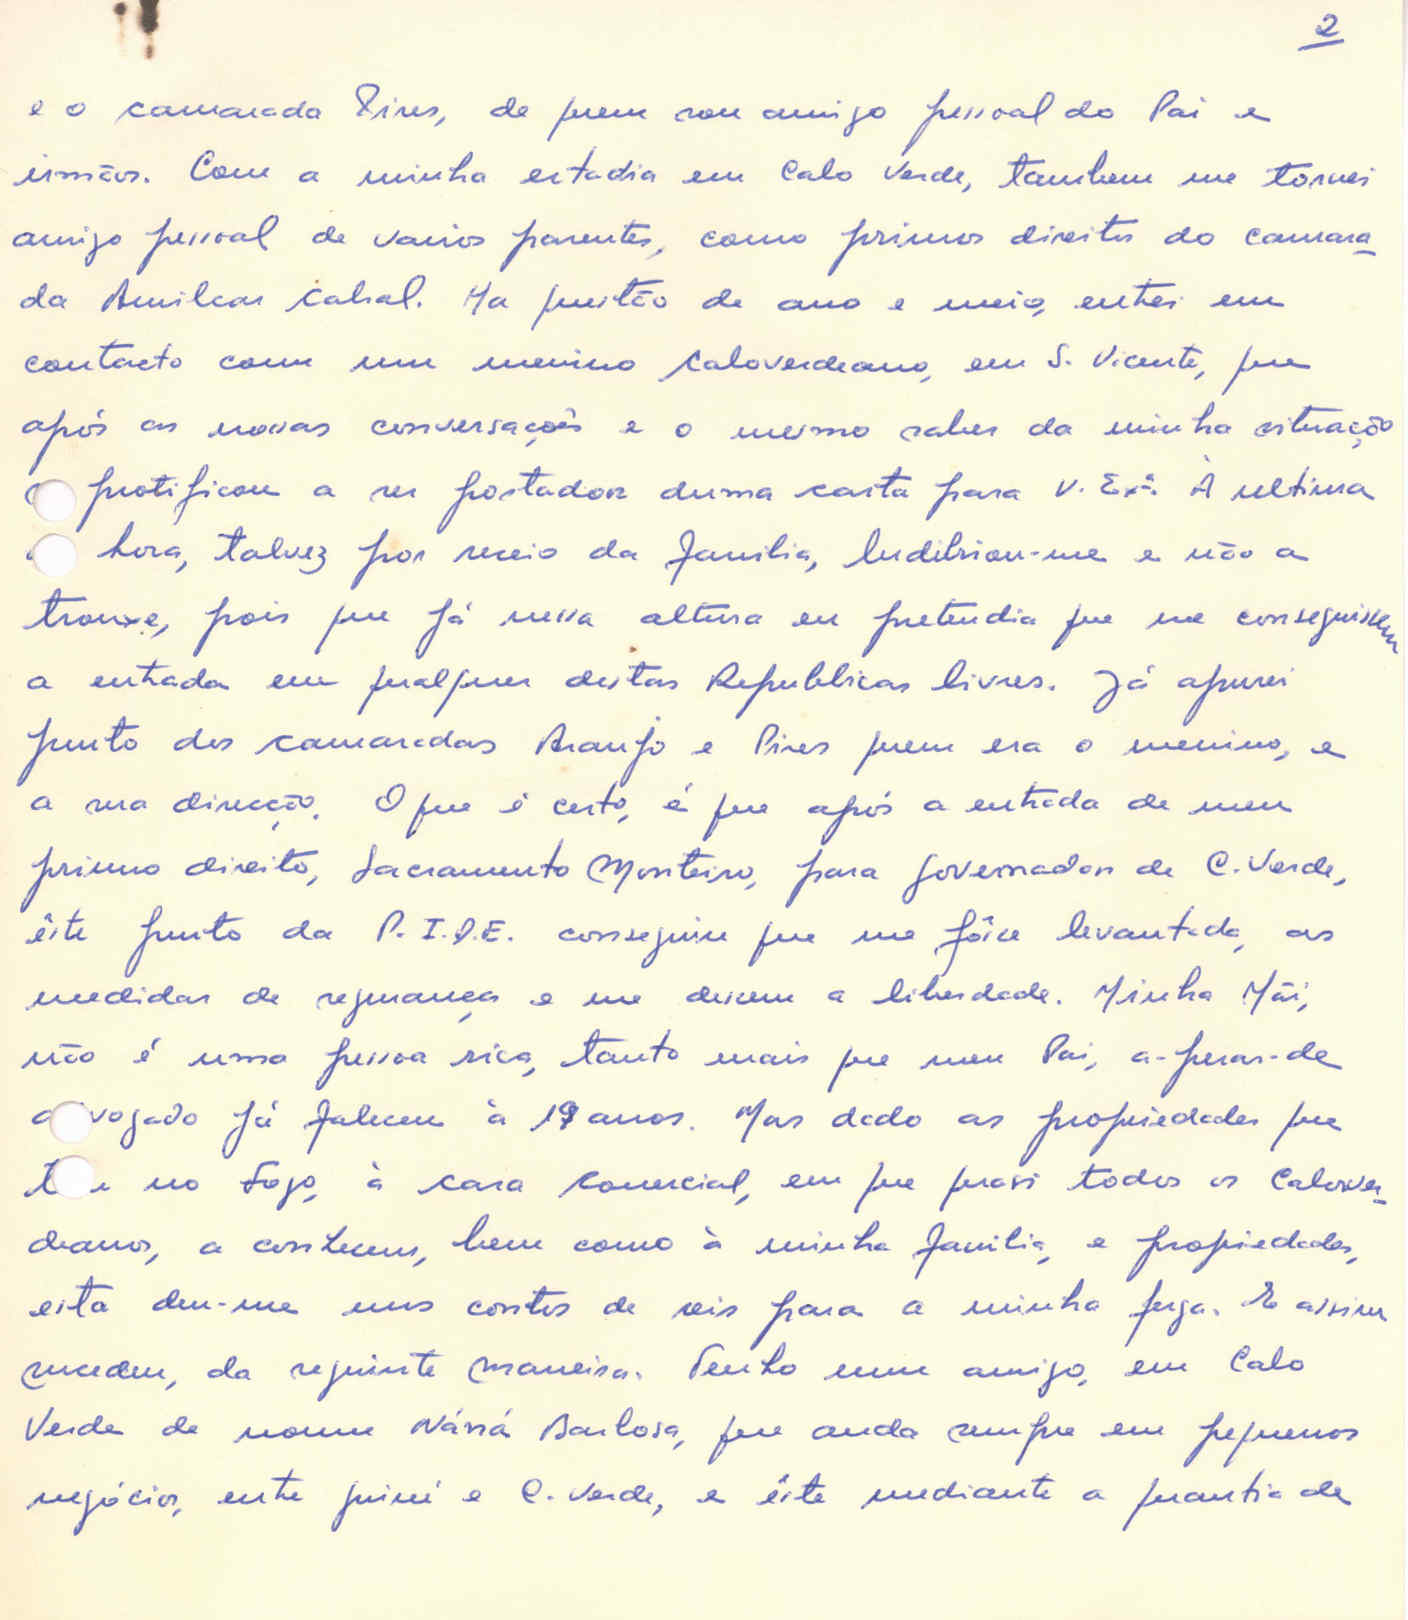 2
e o camarada Pires, de quem sou amigo pessoal do Pai e
irmãos. Com a minha estadia em Cabo Verde, tambem me tornei
amigo pessoal de varios parentes, como primos direitos do camara-
da Amilcar Cabral. Ha questão de ano e meio, entrei em
contacto com um menino Caboverdeano, em S. Vicente, que
após as nossas conversações e o mesmo saber da minha situação
protificou a ser portador duma carta para V. Exª. À ultima
hora, talvez por receio da familia, ludibriou-me e não a
trouxe, pois que já nessa altura eu pretendia que me conseguissem
a entrada em qualquer destas Republicas livres. Já apurei
junto dos camaradas Araujo e Pires quem era o menino, e
a sua direcção. O que é certo, é que após a entrada de meu
primo direito, Sacramento Monteiro, para governador de C. Verde,
êste junto da P.I.D.E. conseguiu que me fôsse levantada, as
medidas de segurança e me dessem a liberdade. Minha Mãi,
não é uma pessoa rica, tanto mais que meu Pai, a-pesar-de
advogado já faleceu à anos. Mas dado as propriedades que
no Fogo, à casa Comercial, em que quasi todos os Cabover-
deanos, a conhecem, bem como à minha familia, e propriedades,
esta deu-me uns contos de reis para a minha fuga. E assim
sucedeu, da seguinte maneira. Tenho um amigo, em Cabo
Verde de nome Nássá Barbosa, que anda sempre em pequenos
negócios, entre guiné e C. Verde, e êste mediante a quantia de